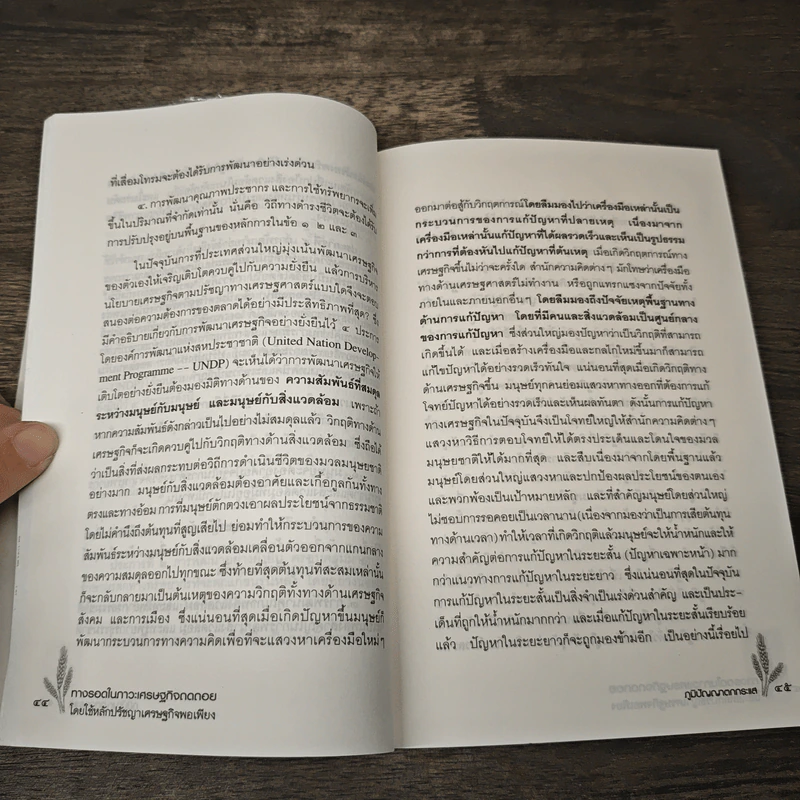 ที่เสื่อมโทรมจะต้องได้รับการพัฒนาอย่างเร่งด่วน
๔. การพัฒนาคุณภาพประชากร และการใช้ทรัพยากรจะเพิ่ม
ขึ้นในปริมาณที่จำกัดเท่านั้น นั่นคือ วิถีทางดำรงชีวิตจะต้องได้รับ
การปรับปรุงอยู่บนพื้นฐานของหลักการในข้อ ๑ ๒ และ ๓
ในปัจจุบันการที่ประเทศส่วนใหญ่มุ่งเน้นพัฒนาเศรษฐกิจ
ของตัวเองให้เจริญเติบโตควบคู่ไปกับความยั่งยืน แล้วการบริหาร
นโยบายเศรษฐกิจตามปรัชญาทางเศรษฐศาสตร์แบบใดจึงจะตอบ
สนองต่อความต้องการของตลาดได้อย่างมีประสิทธิภาพที่สุด? ซึ่ง
มีคำอธิบายเกี่ยวกับการพัฒนาเศรษฐกิจอย่างยั่งยืนไว้ ๔ ประการ
โดยองค์การพัฒนาแห่งสหประชาชาติ (United Nation Develop-
ment Programme -- UNDP) จะเห็นได้ว่าการพัฒนาเศรษฐกิจให้
เติบโตอย่างยั่งยืนต้องมองมิติทางด้านของ ความสัมพันธ์ที่สมดุล
ระหว่างมนุษย์กับมนุษย์ และมนุษย์กับสิ่งแวดล้อม เพราะถ้า
หากความสัมพันธ์ดังกล่าวเป็นไปอย่างไม่สมดุลแล้ว วิกฤติทางด้าน
เศรษฐกิจก็จะเกิดควบคู่ไปกับวิกฤติทางด้านสิ่งแวดล้อม ซึ่งถือได้
ว่าเป็นสิ่งที่ส่งผลกระทบต่อวิถีการดำเนินชีวิตของมวลมนุษยชาติ
อย่างมาก มนุษย์กับสิ่งแวดล้อมต้องอาศัยและเกื้อกูลกันทั้งทาง
ตรงและทางอ้อม การที่มนุษย์ตักตวงเอาผลประโยชน์จากธรรมชาติ
โดยไม่คำนึงถึงต้นทุนที่สูญเสียไป ย่อมทำให้กระบวนการของความ
สัมพันธ์ระหว่างมนุษย์กับสิ่งแวดล้อมเคลื่อนตัวออกจากแกนกลาง
ของความสมดุลออกไปทุกขณะ ซึ่งท้ายที่สุดต้นทุนที่สะสมเหล่านั้น
ก็จะกลับกลายมาเป็นต้นเหตุของความวิกฤติทั้งทางด้านเศรษฐกิจ
สังคม และการเมือง ซึ่งแน่นอนที่สุดเมื่อเกิดปัญหาขึ้นมนุษย์ก็
พัฒนากระบวนการทางความคิดเพื่อที่จะแสวงหาเครื่องมือใหม่ๆ
๔๔ ทางรอดในภาวะเศรษฐกิจถดถอย
โดยใช้หลักปรัชญาเศรษฐกิจพอเพียง
ออกมาต่อสู้กับวิกฤตการณ์โดยลืมมองไปว่าเครื่องมือเหล่านั้นเป็น
กระบวนการของการแก้ปัญหาที่ปลายเหตุ เนื่องมาจาก
เครื่องมือเหล่านั้นแก้ปัญหาที่ได้ผลรวดเร็วและเห็นเป็นรูปธรรม
กว่าการที่ต้องหันไปแก้ปัญหาที่ต้นเหตุ เมื่อเกิดวิกฤตการณ์ทาง
เศรษฐกิจขึ้นไม่ว่าจะครั้งใด สำนักความคิดต่างๆ มักโทษว่าเครื่องมือ
ทางด้านเศรษฐศาสตร์ไม่ทำงาน หรือถูกแทรกแซงจากปัจจัยทั้ง
ภายในและภายนอกอื่นๆ โดยลืมมองถึงปัจจัยเหตุพื้นฐานทาง
ด้านการแก้ปัญหา โดยที่มีคนและสิ่งแวดล้อมเป็นศูนย์กลาง
ของการแก้ปัญหา ซึ่งส่วนใหญ่มองปัญหาว่าเป็นวิกฤติที่สามารถ
เกิดขึ้นได้ และเมื่อสร้างเครื่องมือและกลไกใหม่ขึ้นมาก็สามารถ
แก้ไขปัญหาได้อย่างรวดเร็วทันใจ แน่นอนที่สุดเมื่อเกิดวิกฤติทาง
ด้านเศรษฐกิจขึ้น มนุษย์ทุกคนย่อมแสวงหาทางออกที่ต้องการแก้
โจทย์ปัญหาได้อย่างรวดเร็วและเห็นผลทันตา ดังนั้นการแก้ปัญหา
ทางเศรษฐกิจในปัจจุบันจึงเป็นโจทย์ใหญ่ให้สำนักความคิดต่างๆ
แสวงหาวิธีการตอบโจทย์ให้ได้ตรงประเด็นและโดนใจของมวล
มนุษยชาติให้ได้มากที่สุด และสืบเนื่องมาจากโดยพื้นฐานแล้ว
มนุษย์โดยส่วนใหญ่แสวงหาและปกป้องผลประโยชน์ของตนเอง
และพวกพ้องเป็นเป้าหมายหลัก และที่สำคัญมนุษย์โดยส่วนใหญ่
ไม่ชอบการรอคอยเป็นเวลานาน (เนื่องจากมองว่าเป็นการเสียต้นทุน
ทางด้านเวลา) ทำให้เวลาที่เกิดวิกฤติแล้วมนุษย์จะให้น้ำหนักและให้
ความสำคัญต่อการแก้ปัญหาในระยะสั้น (ปัญหาเฉพาะหน้า) มาก
กว่าแนวทางการแก้ปัญหาในระยะยาว ซึ่งแน่นอนที่สุดในปัจจุบัน
การแก้ปัญหาในระยะสั้นเป็นสิ่งจำเป็นเร่งด่วนสำคัญ และเป็นประ-
เด็นที่ถูกให้น้ำหนักมากกว่า และเมื่อแก้ปัญหาในระยะสั้นเรียบร้อย
แล้ว ปัญหาในระยะยาวก็จะถูกมองข้ามอีก เป็นอย่างนี้เรื่อยไป
ภูมิปัญญาตกกระแส ๔๕